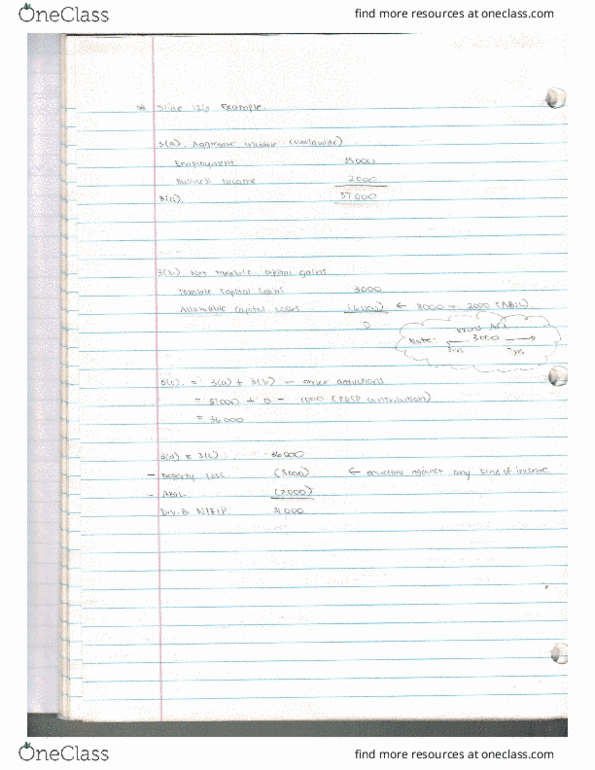 OneClass
find more resources at oneclass.com
* Slide 126 Example.
3(a). Aggregate Income (worldwide)
Employment 35000
Business Income 2000
3(a). 37000
3(b) Net taxable capital gains
Taxable Capital Gains 3000
Allowable Capital Losses (6000) ← 8000 - 2000 (ABIL).
0
Note: 3000
3 yrs
3(c). = 3(a) + 3(b) - other deductions
= 37000 + 0 - 1000 (RRSP contribution)
= 36000
3(d) = 3(c) 36000
- Property Loss (3000) ← deductible against any kind of income
- ABIL (2000)
Div. B NIFTP 31000
OneClass
find more resources at oneclass.com